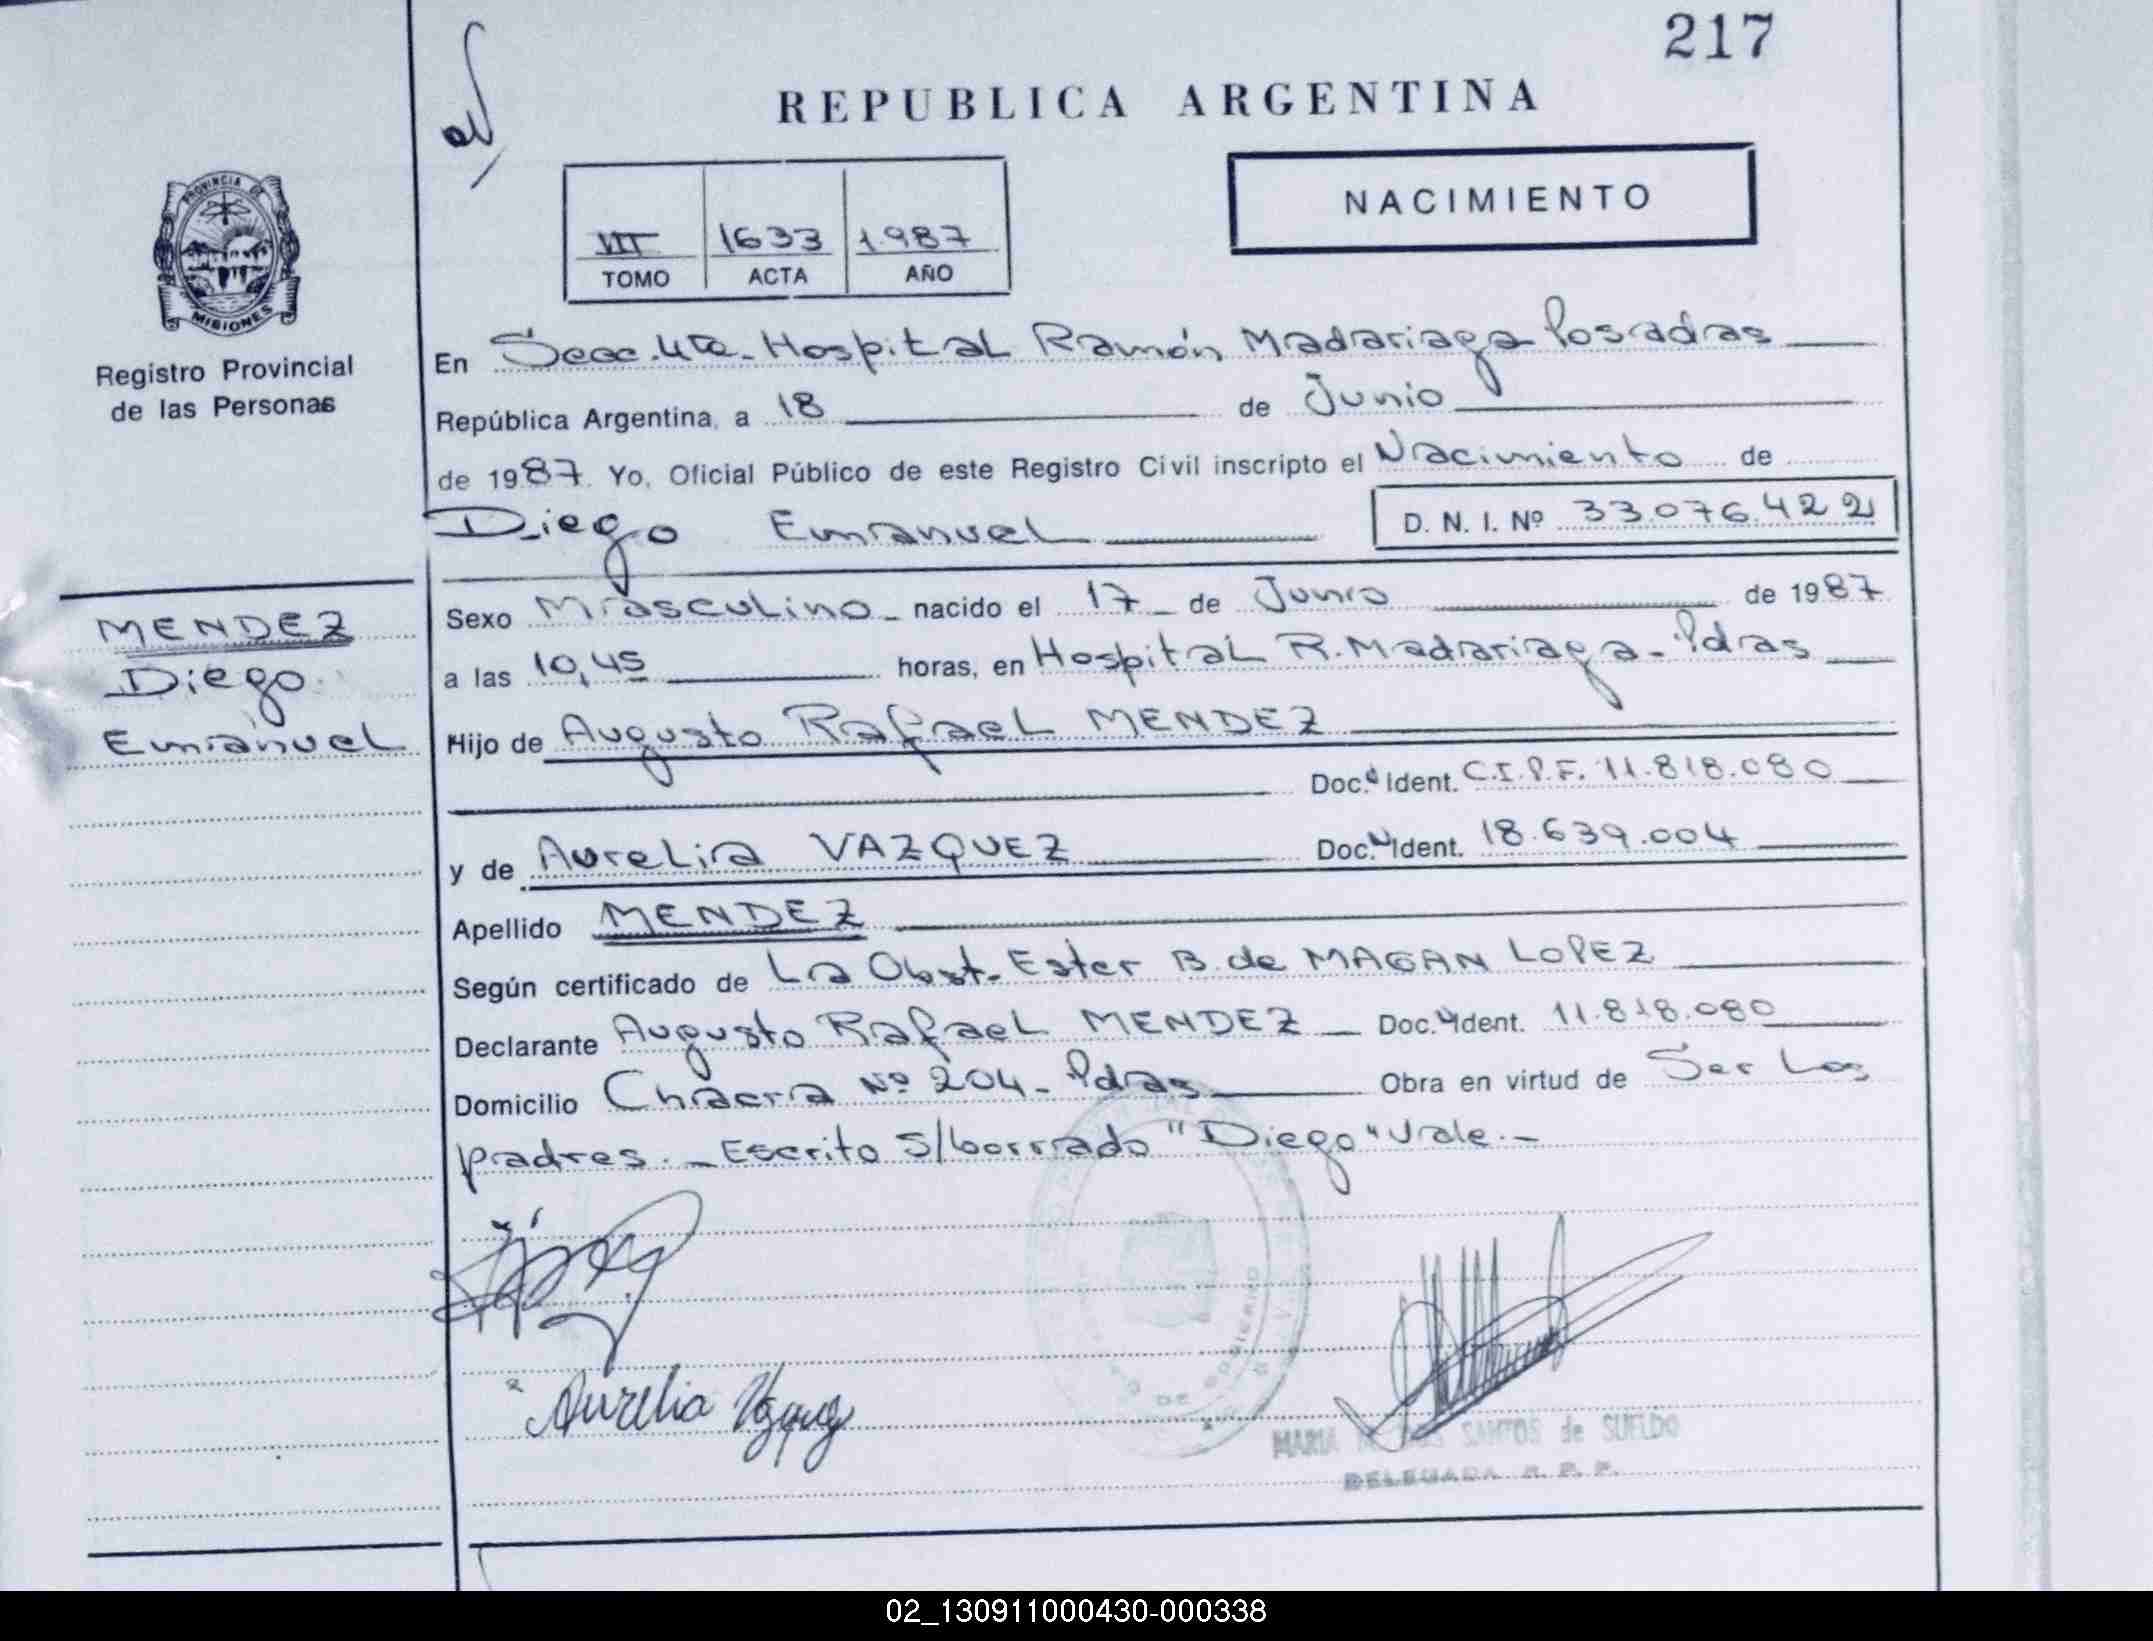 217
REPUBLICA ARGENTINA
NACIMIENTO
VII 1633 1.987
TOMO ACTA AÑO
PROVINCIA DE
MISIONES
Registro Provincial
de las Personas
En Secc. 4ta. Hospital Ramón Madariaga Posadas
República Argentina, a 18 de Junio
de 1987. Yo, Oficial Público de este Registro Civil inscripto el Nacimiento de
Diego Emanuel D. N. I. Nº 33.076.422
MENDEZ
Diego
Emanuel
Sexo Masculino - nacido el 17 - de Junio de 1987
a las 10,45 horas, en Hospital R. Madariaga - Pdas
Hijo de Augusto Rafael MENDEZ
Doc. Ident. C.I.P.F. 11.818.080
y de Aurelia VAZQUEZ Doc. Ident. 18.639.004
Apellido MENDEZ
Según certificado de La Obst. Ester B. de MAGAN LOPEZ
Declarante Augusto Rafael MENDEZ - Doc. Ident. 11.818.080
Domicilio Chacra Nº 204 - Pdas Obra en virtud de Ser Los
padres. - Escrito s/borrado "Diego" Vale. -
Aurelia Vazquez
DE GOBIERNO
MARIA SANTOS de SUELDO
DELEGADA R. P. P.
02_130911000430-000338